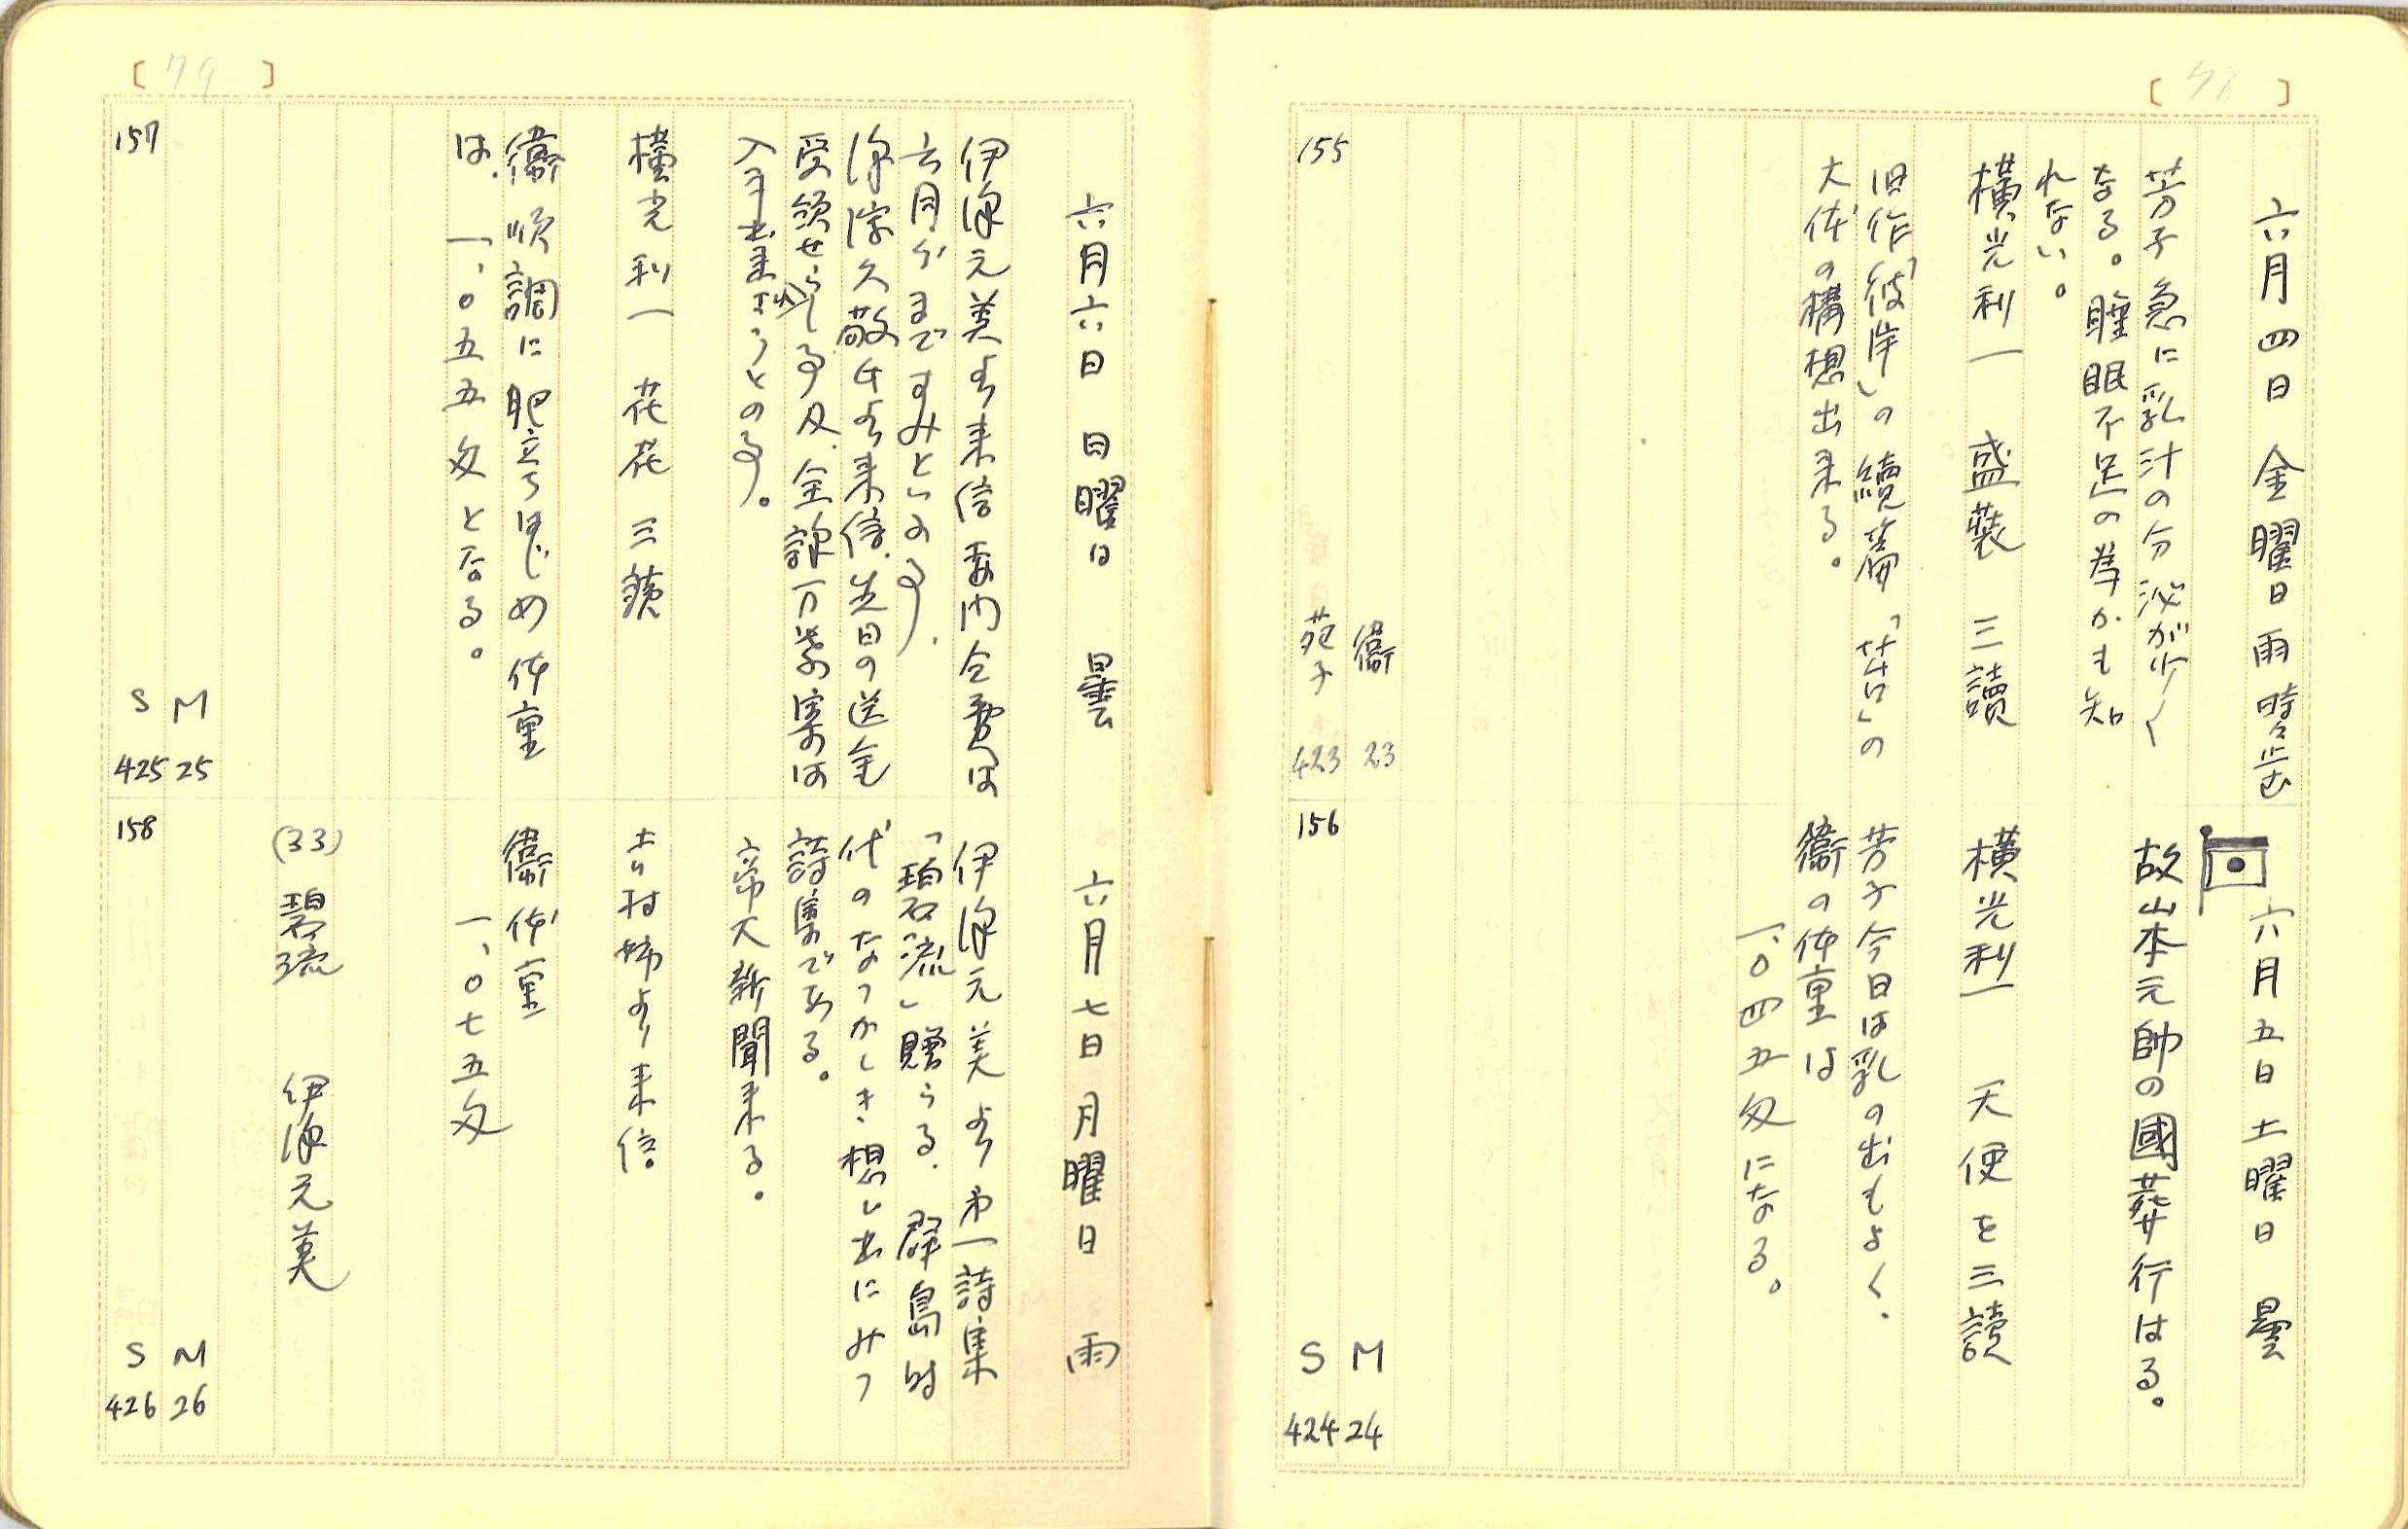 [78]
六月四日 金曜日 雨 時々止む
芳子急に乳汁の分泌が少く
なる。睡眠不足の為かも知
れない。
横光利一 盛装 三讀
旧作「彼岸」の續篇「苔」の
大体の構想出来る。
衞 23
苑子 423
155
六月五日 土曜日 曇
故山本元帥の國葬行はる。
横光利一 天使を三讀
芳子今日は乳の出もよく、
衞の体重は
一、〇四五匁になる。
M 24
S 424
156
[79]
六月六日 日曜日 曇
伊濂元美より来信 案内会費は
六月分まですみとの事、
久敬氏より来信、先日の送金
受領せられし事及、全訳万葉集は
入手出来さうとの事。
横光利一 花花 三讀
衞 順調に肥立ちはじめ 体重
は、一、〇五五匁と否る。
M 25
S 425
157
六月七日 月曜日 雨
元美より第一詩集
「碧流」贈らる、群島時
代のなつかしき想い出にみつ
詩集である。
帝大新聞来る。
吉村姉より来信。
衞 体重
一、〇七五匁
(33) 碧流 元美
M 26
S 426
158